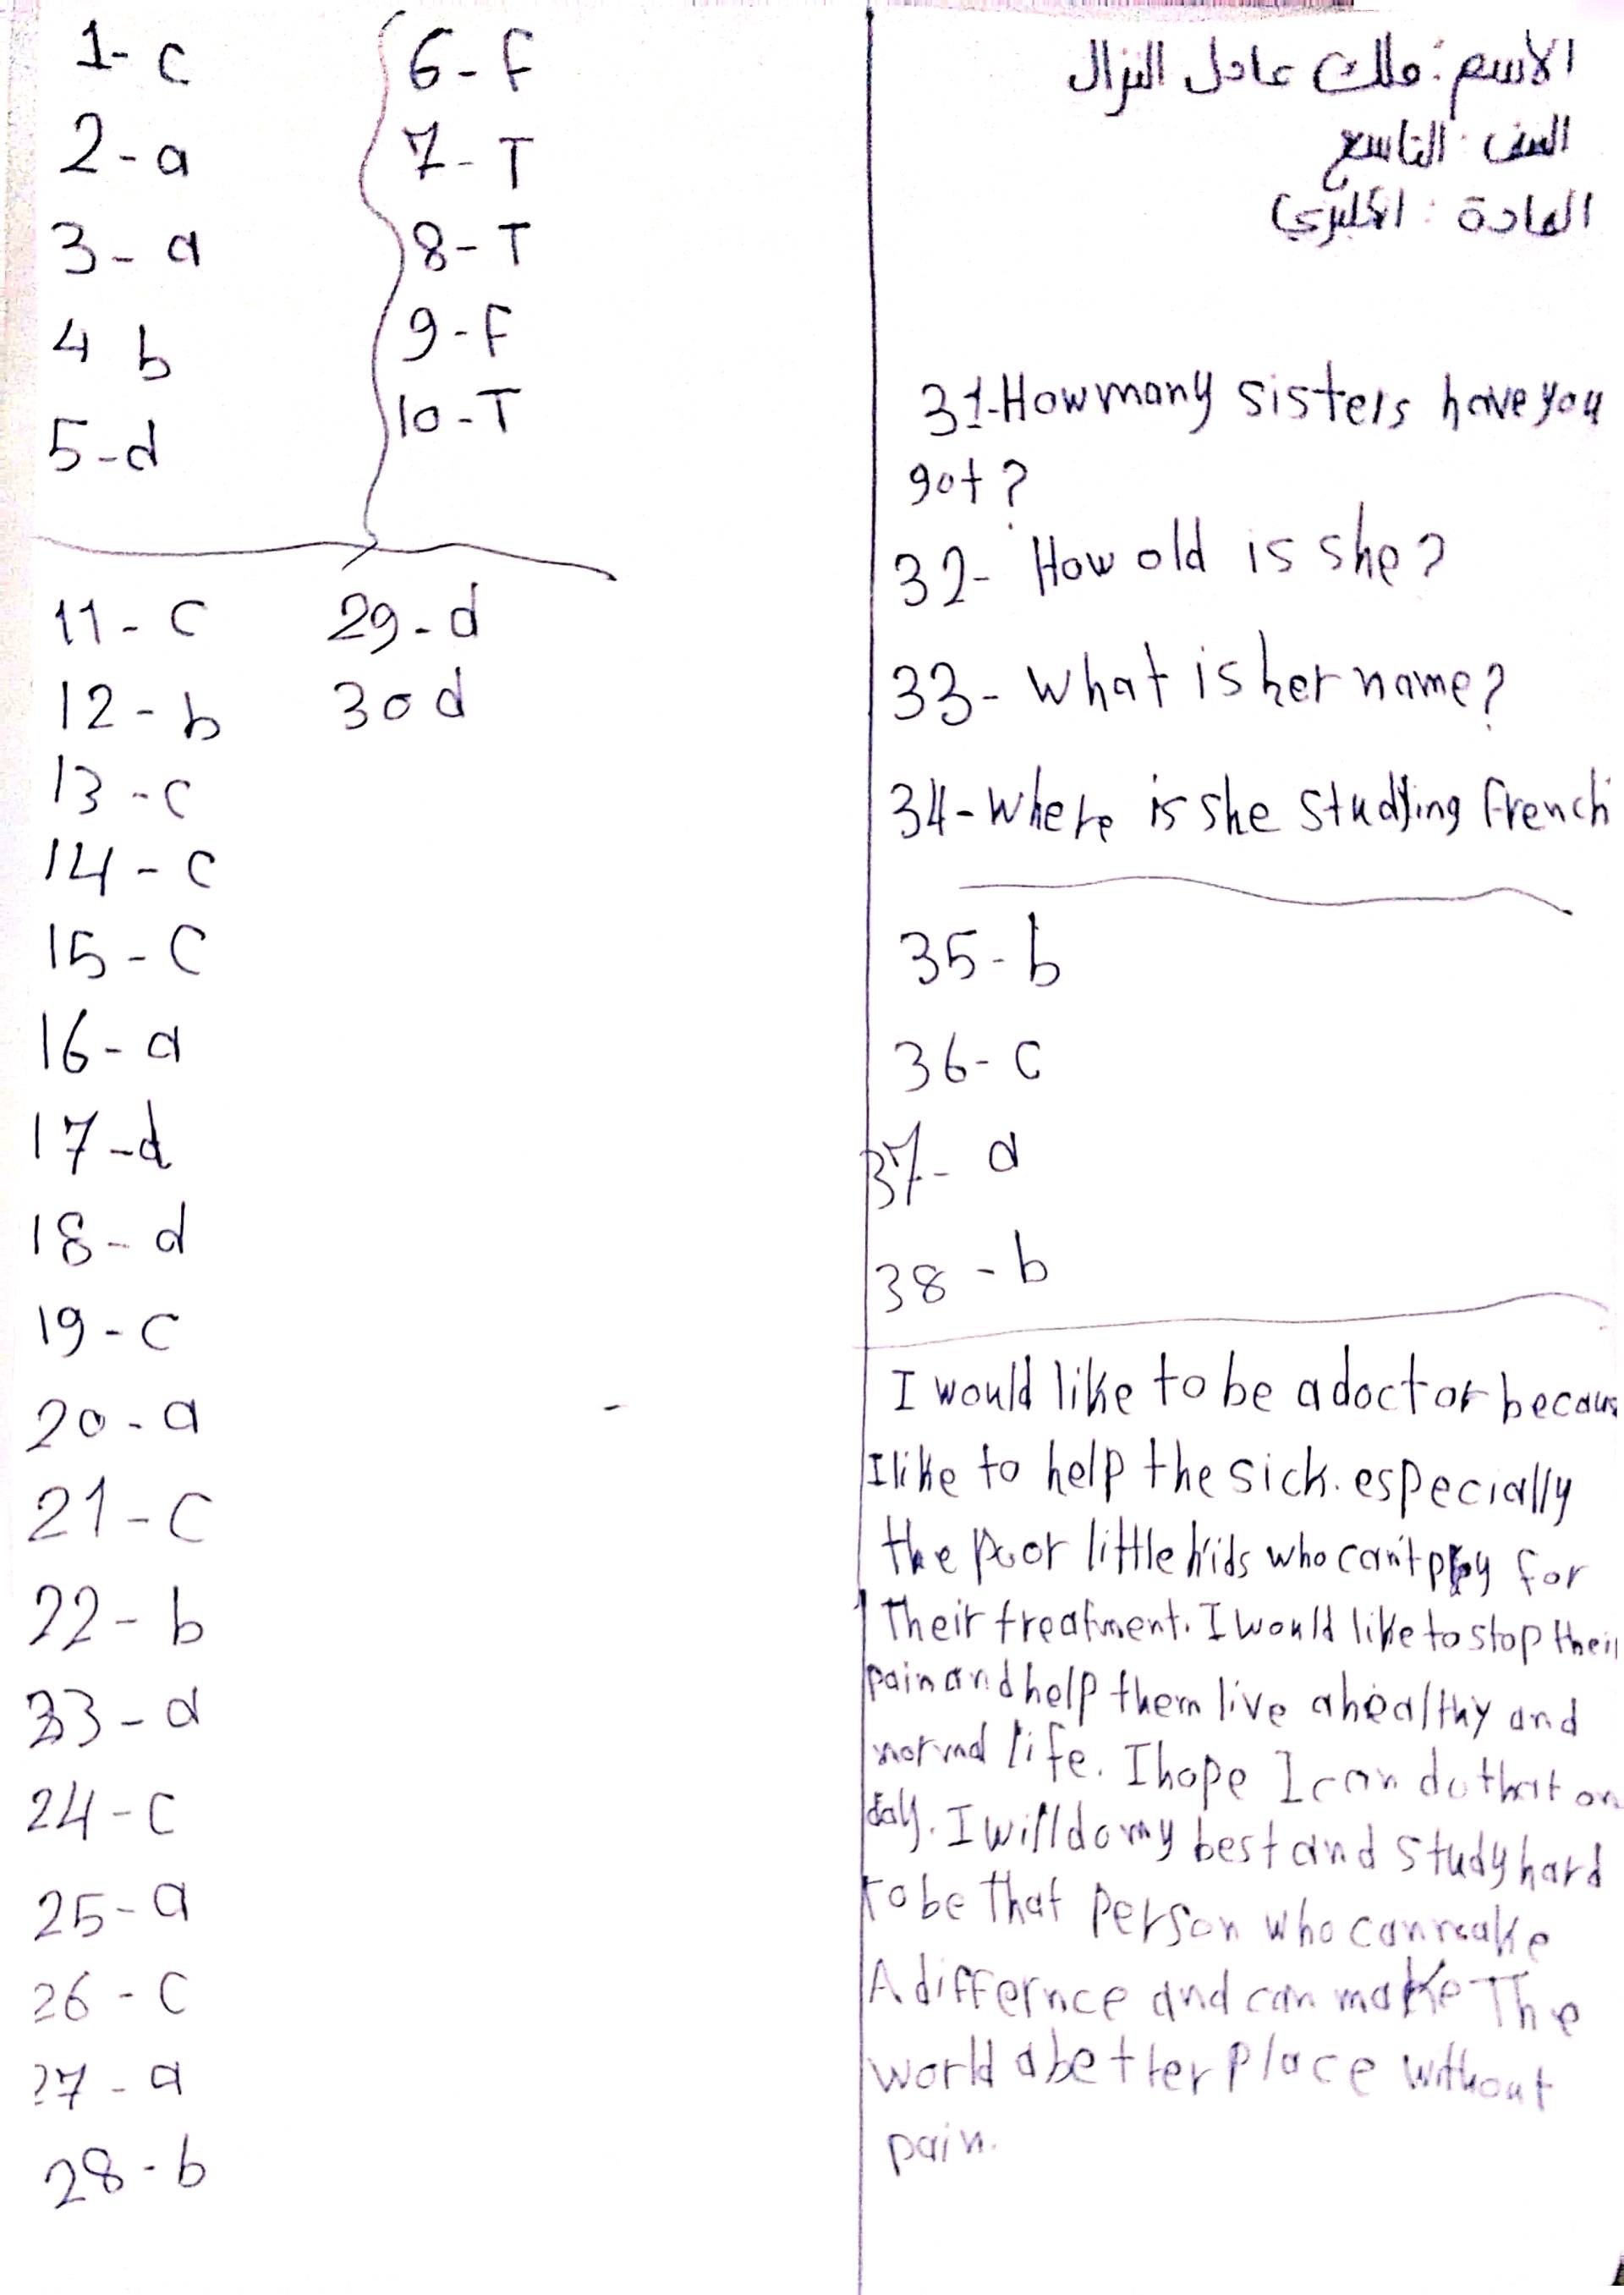 1- c
2 - a
3 - a
4 b
5 - d
6 - F
7 - T
8 - T
9 - F
10 - T
11 - c
12 - b
13 - c
14 - c
15 - c
16 - a
17 - d
18 - d
19 - c
20 - a
21 - c
22 - b
33 - a
24 - c
25 - a
26 - c
27 - a
28 - b
29 - d
30 d
الاسم : ملك عادل النزال
الصف : التاسع
المادة : انكليزي
31-How many sisters have you
got ?
32- How old is she ?
33- What is her name ?
34- Where is she studying French
35 - b
36 - c
37 - a
38 - b
I would like to be a doctor becaus
I like to help the sick. especially
the poor little kids who can't pay for
Their treatment. I would like to stop their
pain and help them live a healthy and
normal life. I hope I can do that on
day. I will do my best and study hard
to be that person who can make
A differnce and can make The
world a better place without
pain.